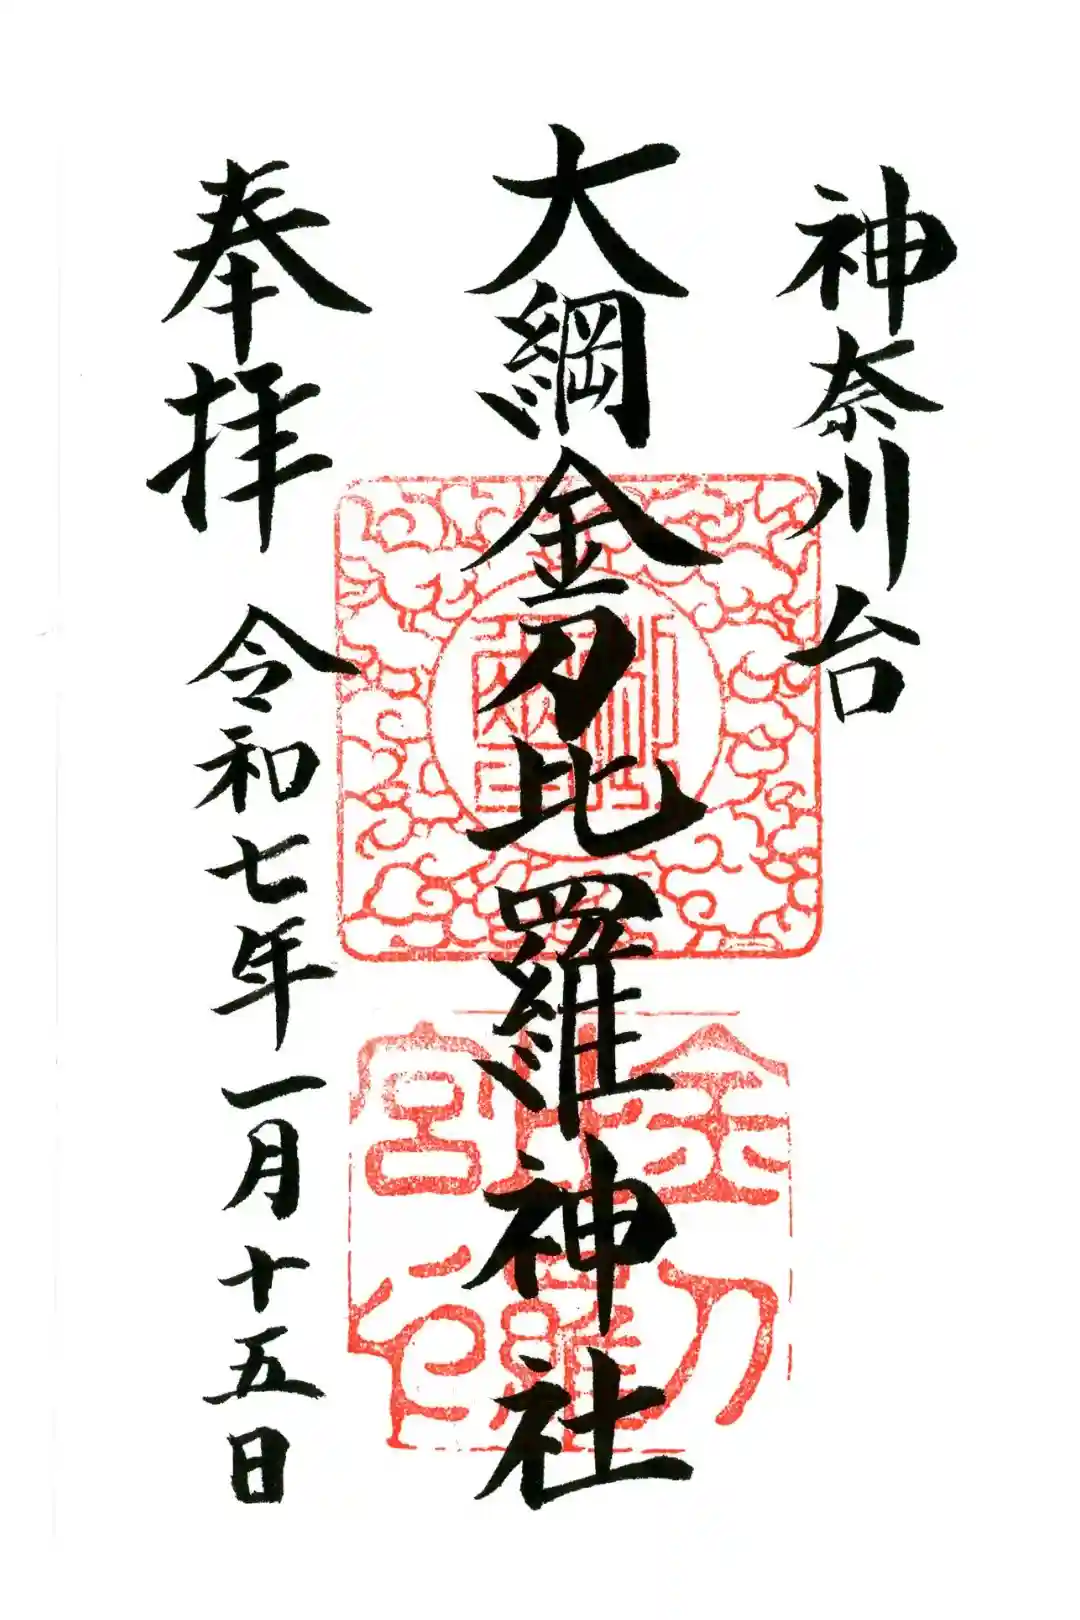 神奈川台
大綱金刀比羅神社
奉拝 令和七年一月十五日
金刀
比羅
宮